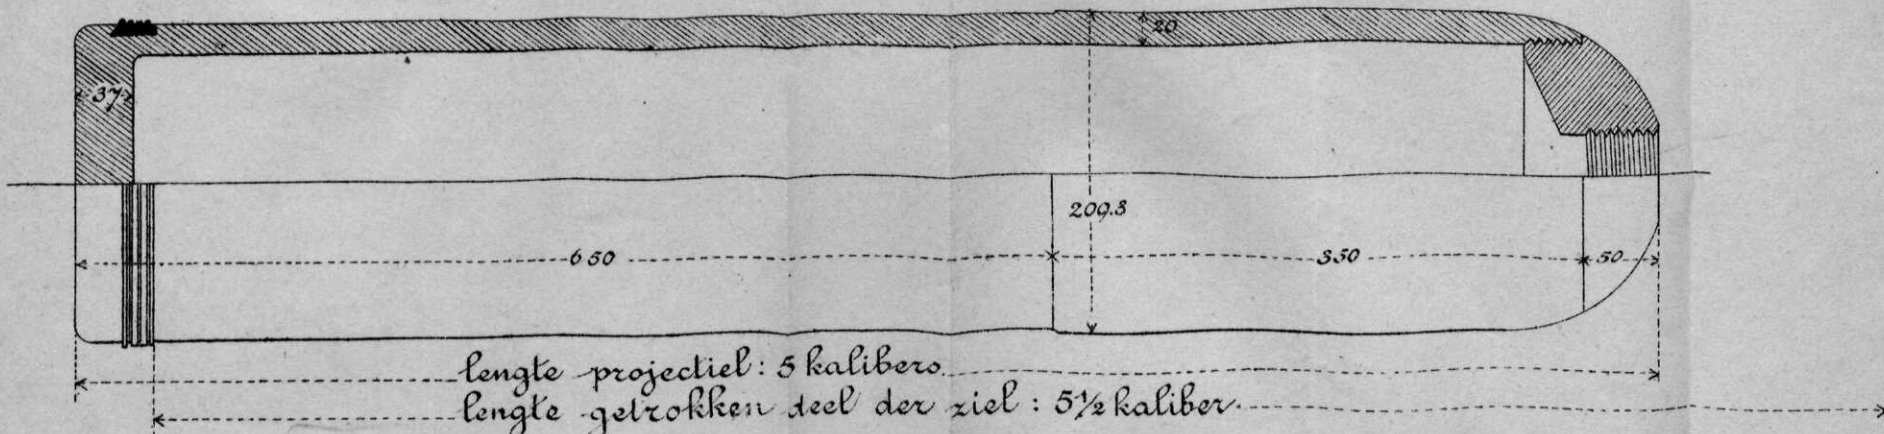 20
37
209.3
650
350
50
lengte projectiel: 5 kalibers
lengte getrokken deel der ziel: 5 1/2 kaliber